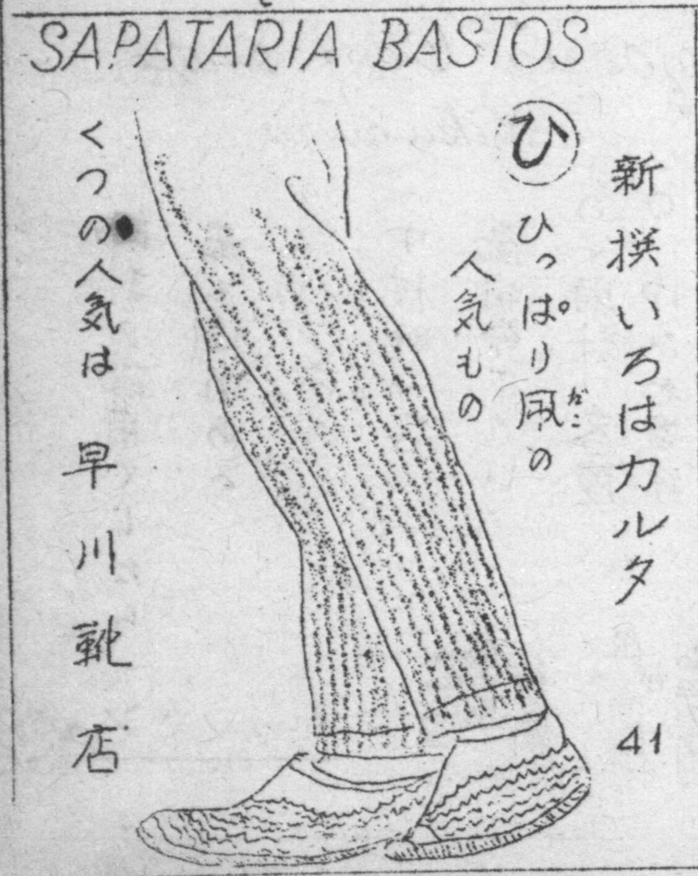 SAPATARIA BASTOS
新撰いろはカルタ
41
ひ
ひっぱり凧の
だこ
人気もの
くつの人気は 早川靴店